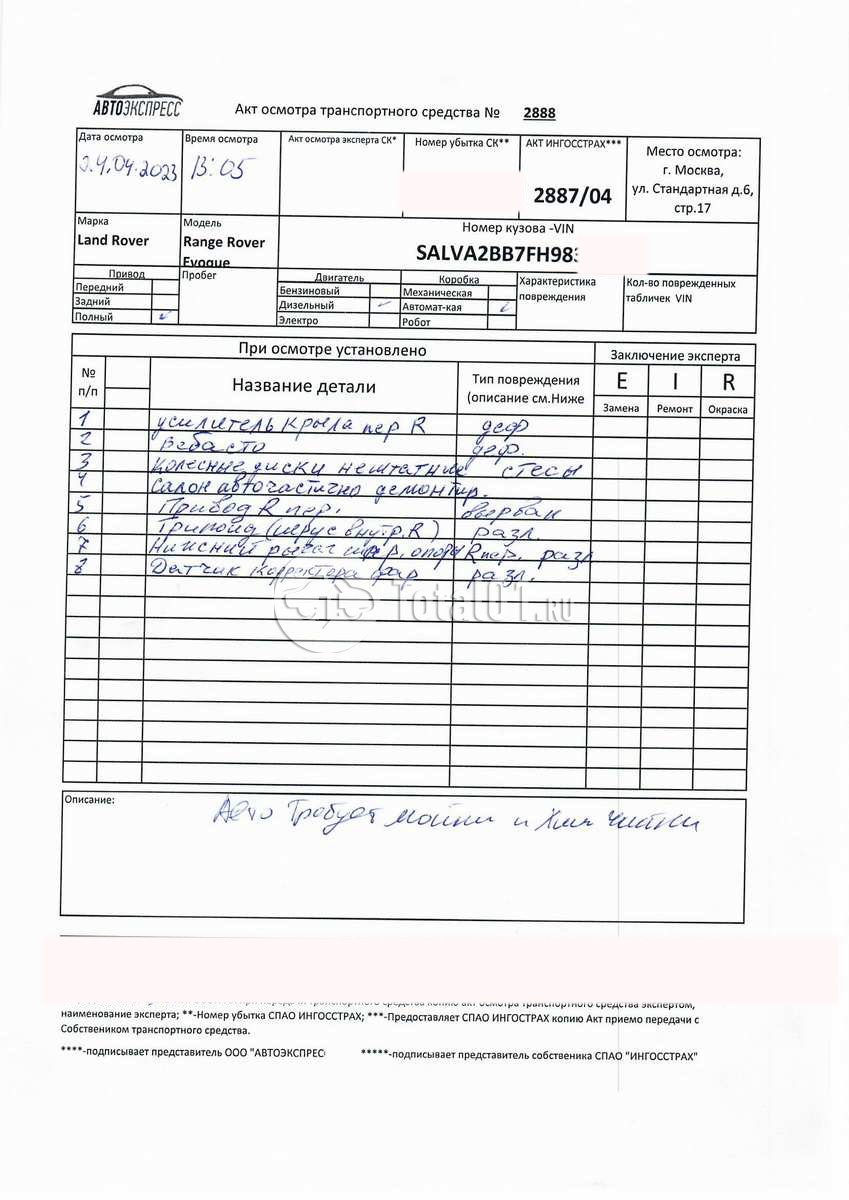 АВТОЭКСПРЕСС
Акт осмотра транспортного средства № 2888
Дата осмотра
24.04.2023
Время осмотра
13:05
Акт осмотра эксперта СК*
Номер убытка СК**
АКТ ИНГОССТРАХ***
2887/04
Место осмотра:
г. Москва,
ул. Стандартная д.6,
стр.17
Марка
Land Rover
Модель
Range Rover
Evoque
Номер кузова -VIN
SALVA2BB7FH983
Привод
Передний
Задний
Полный ✓
Пробег
Двигатель
Бензиновый
Дизельный ✓
Электро
Коробка
Механическая
Автомат-кая ✓
Робот
Характеристика
повреждения
Кол-во поврежденных
табличек VIN
При осмотре установлено
Заключение эксперта
№
п/п
Название детали
Тип повреждения
(описание см.Ниже
E I R
Замена Ремонт Окраска
1 усилитель крыла пер R деф
2 Вебасто деф.
3 Колесные диски нештатные стесы
4 Салон авто частично демонтир.
5 Привод R пер. вырван
6 Трипоид (шрус внутр. R) разл.
7 Нижний рычаг шар. опора R пер. разл
8 Датчик корректора фар разл.
Total01.RU
Описание:
Авто Требует мойки и Хим Чистки
наименование эксперта; **-Номер убытка СПАО ИНГОССТРАХ; ***-Предоставляет СПАО ИНГОСТРАХ копию Акт приемо передачи с
Собствеником транспортного средства.
****-подписывает представитель ООО "АВТОЭКСПРЕСС
*****-подписывает представитель собственика СПАО "ИНГОССТРАХ"